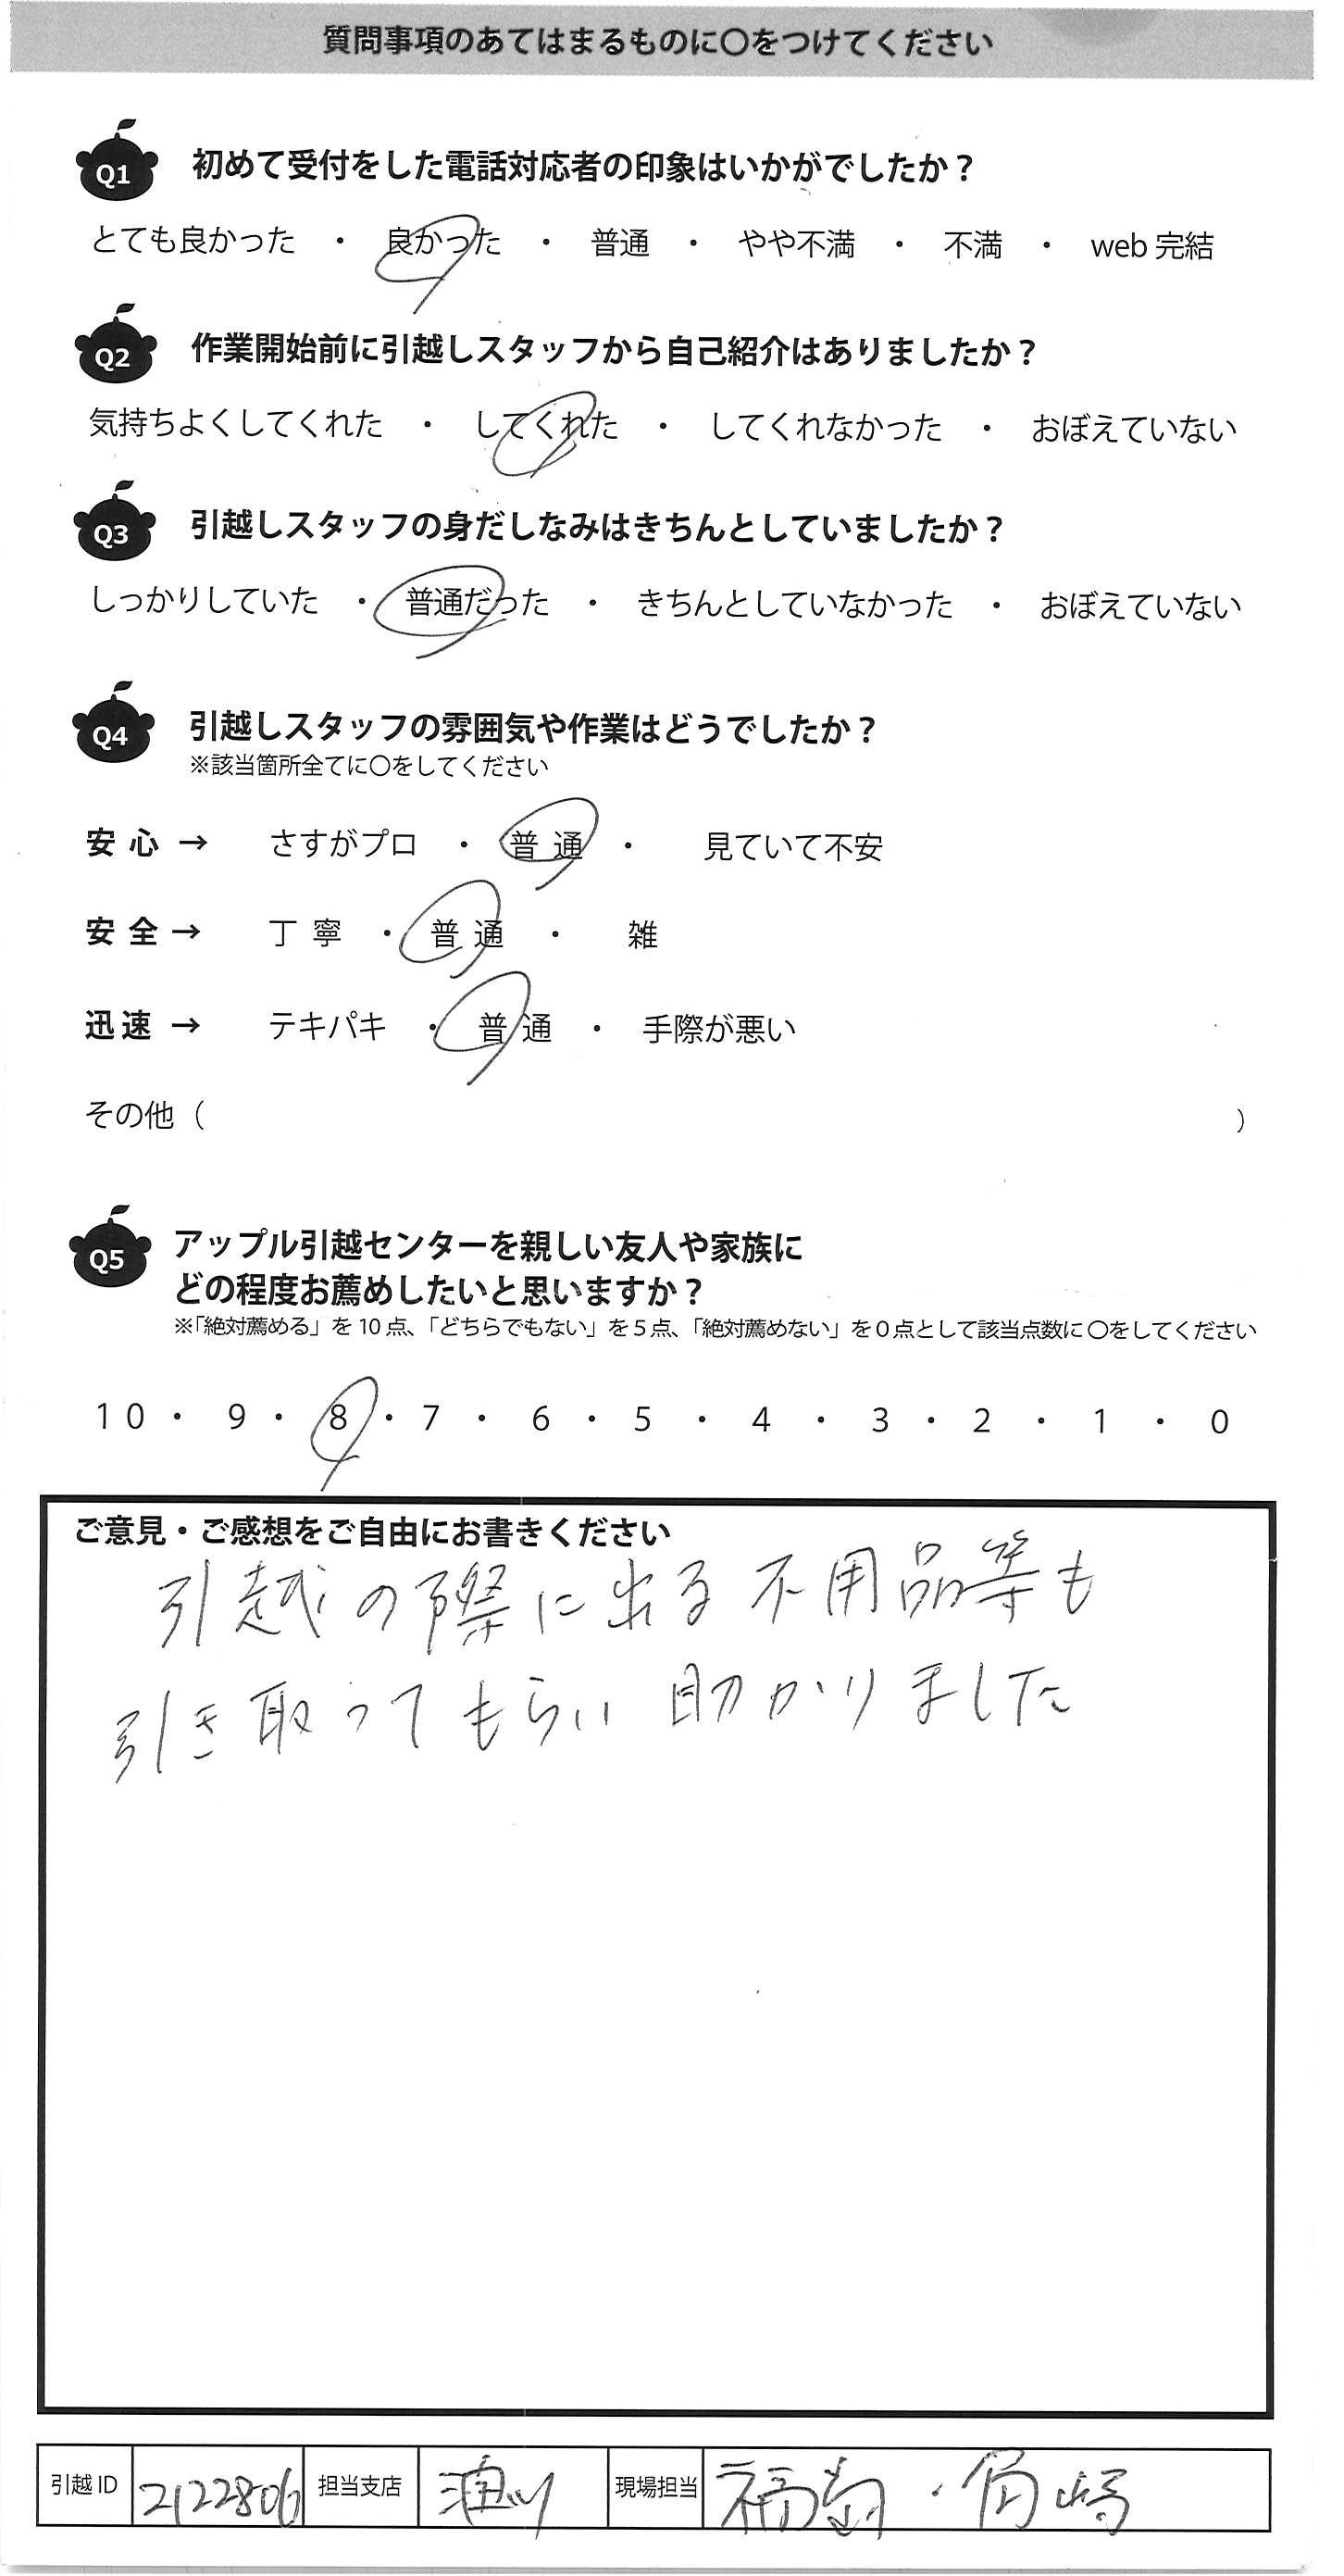 質問事項のあてはまるものに〇をつけてください
Q1 初めて受付をした電話対応者の印象はいかがでしたか？
とても良かった ・ 良かった ・ 普通 ・ やや不満 ・ 不満 ・ web 完結
Q2 作業開始前に引越しスタッフから自己紹介はありましたか？
気持ちよくしてくれた ・ してくれた ・ してくれなかった ・ おぼえていない
Q3 引越しスタッフの身だしなみはきちんとしていましたか？
しっかりしていた ・ 普通だった ・ きちんとしていなかった ・ おぼえていない
Q4 引越しスタッフの雰囲気や作業はどうでしたか？
※該当箇所全てに〇をしてください
安心 → さすがプロ ・ 普通 ・ 見ていて不安
安全 → 丁寧 ・ 普通 ・ 雑
迅速 → テキパキ ・ 普通 ・ 手際が悪い
その他（ ）
Q5 アップル引越センターを親しい友人や家族に
どの程度お薦めしたいと思いますか？
※「絶対薦める」を 10 点、「どちらでもない」を 5 点、「絶対薦めない」を 0 点として該当点数に 〇をしてください
10 ・ 9 ・ 8 ・ 7 ・ 6 ・ 5 ・ 4 ・ 3 ・ 2 ・ 1 ・ 0
ご意見・ご感想をご自由にお書きください
引越の際に出る不用品等も
引き取ってもらい助かりました
引越 ID 2122806 担当支店 現場担当